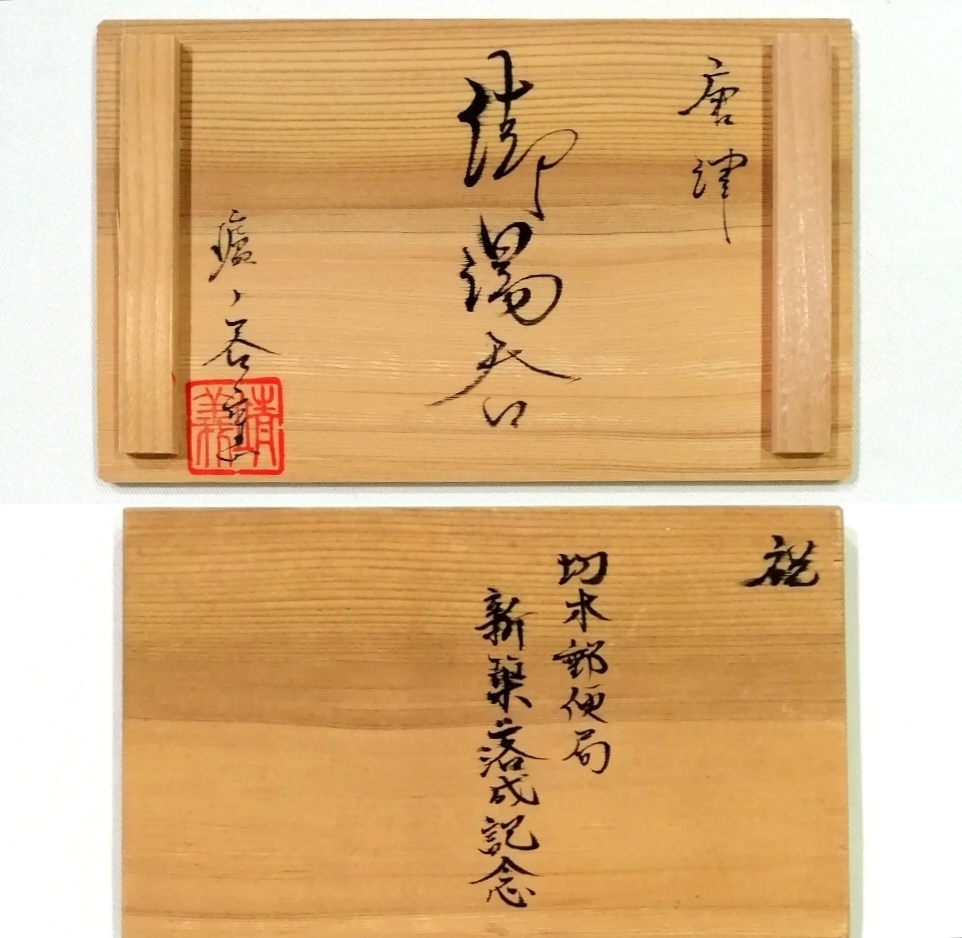 唐津
御湯呑
櫨ノ谷窯
靖義
祝
切木郵便局
新築落成記念